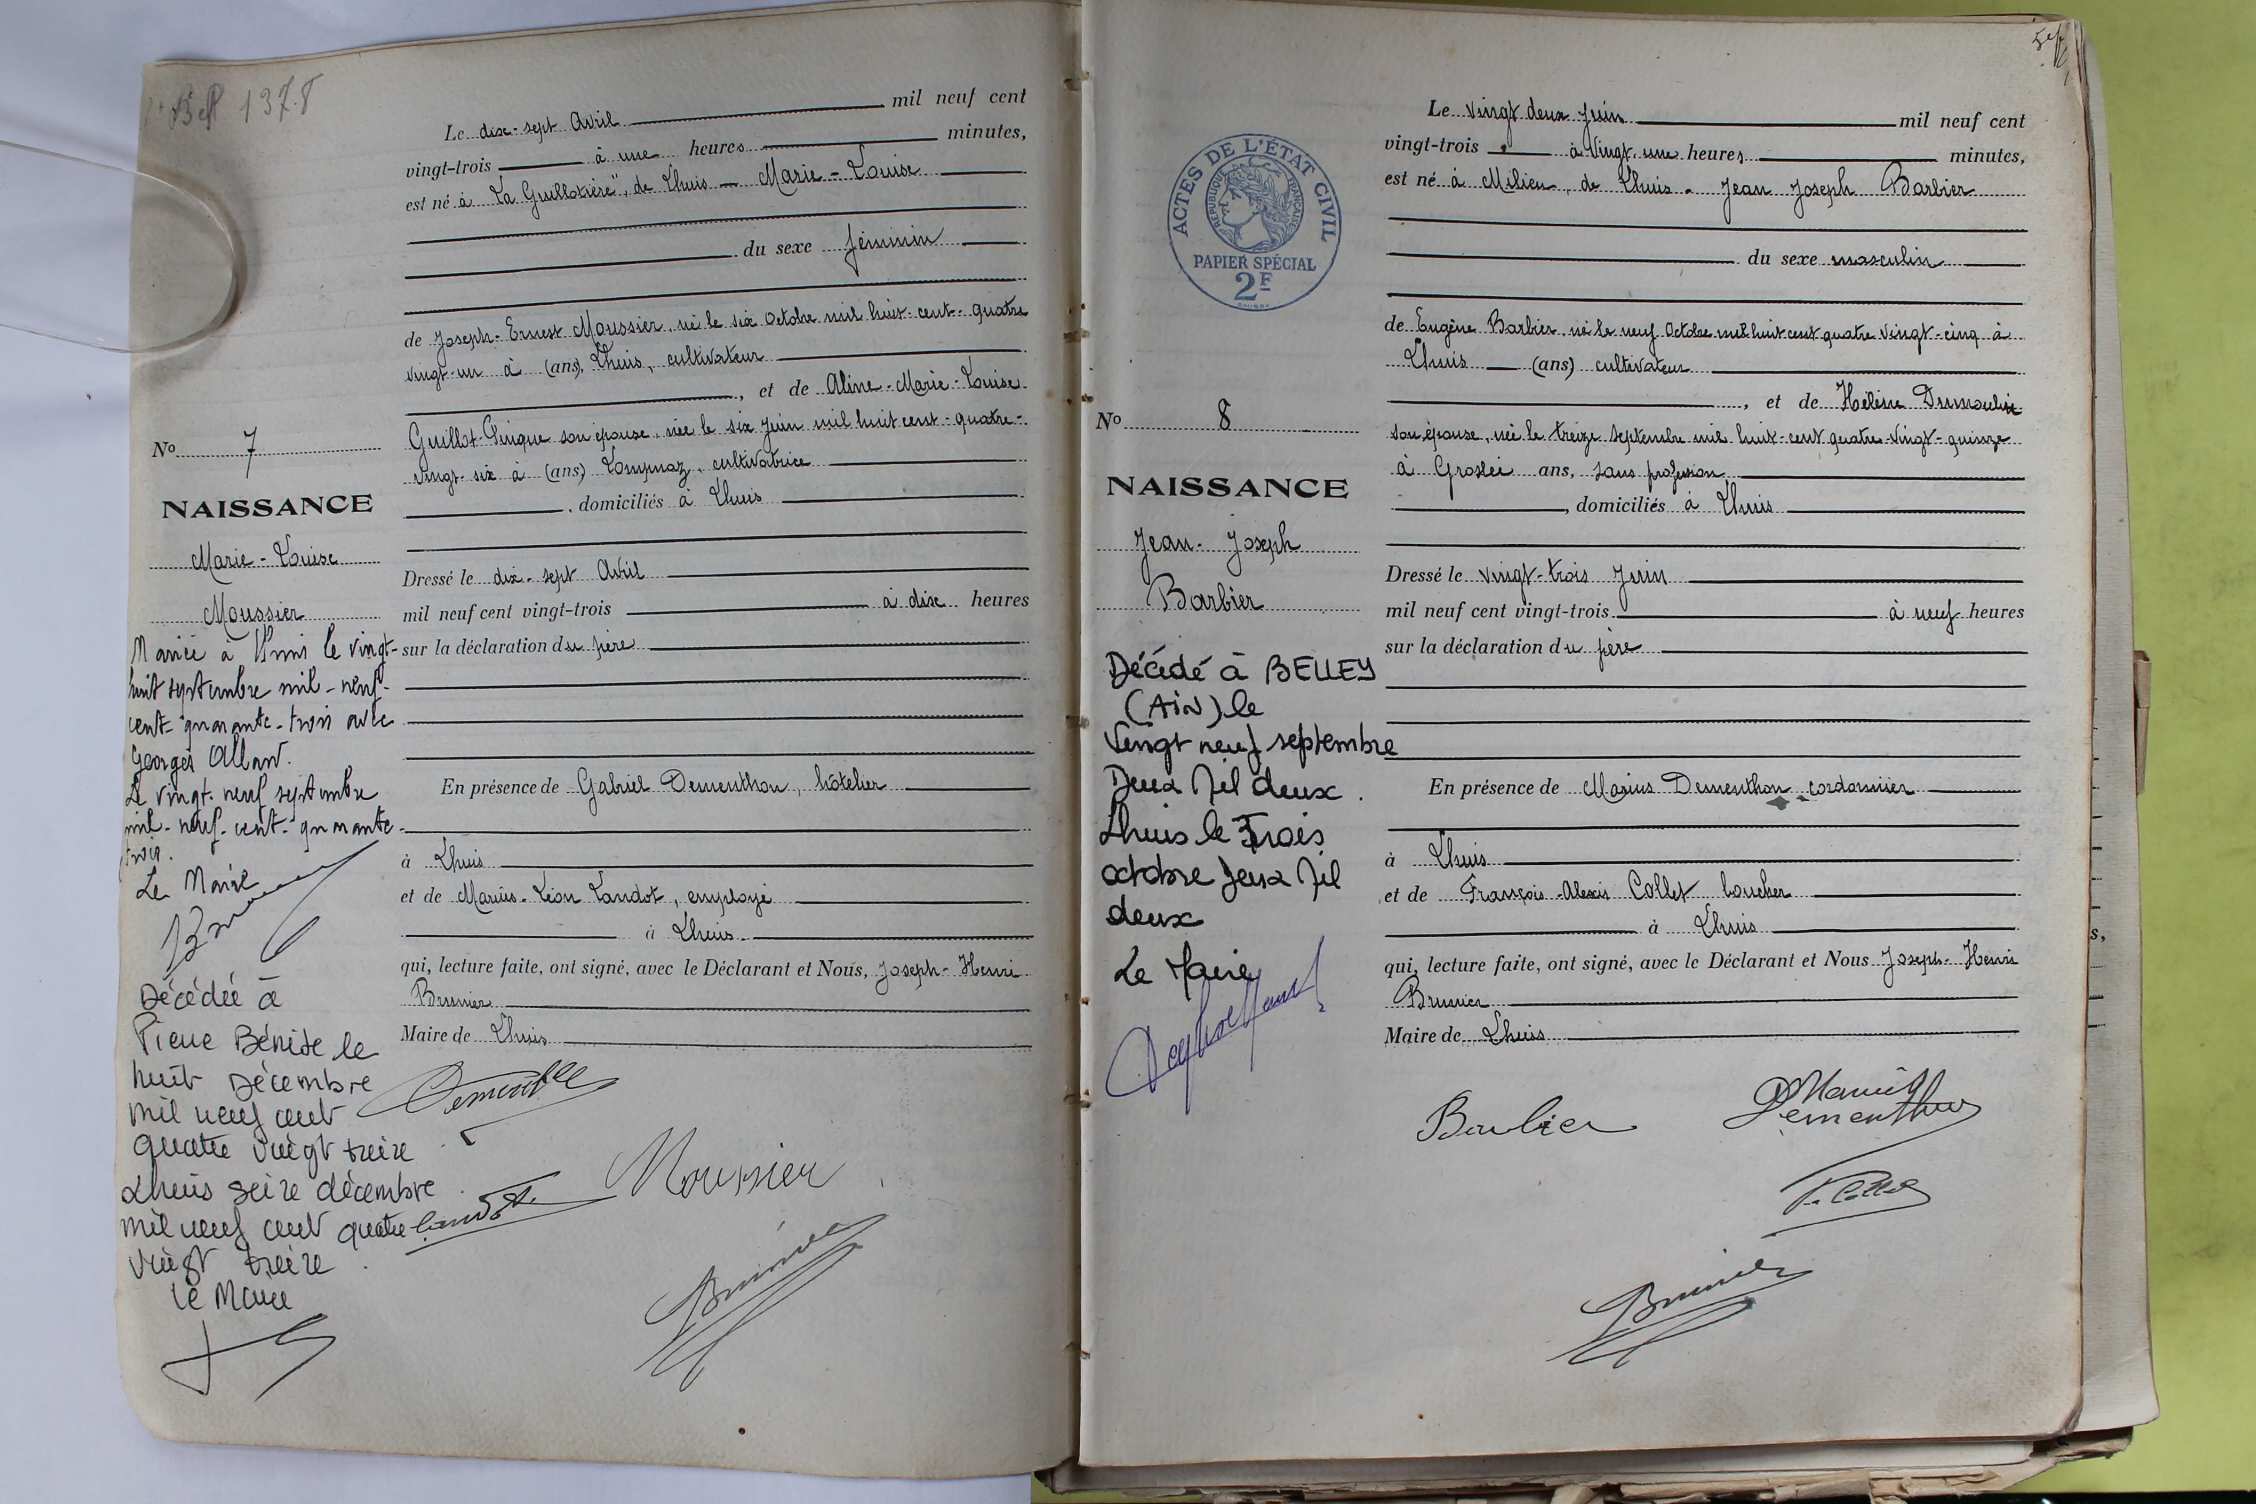 1378
Le dix-sept Avril mil neuf cent
vingt-trois à une heures minutes,
est né à "La Guillotière", de Lhuis - Marie-Louise
du sexe féminin
de Joseph-Ernest Moussier, né le six Octobre mil huit-cent-quatre
vingt-un à (ans), Lhuis, cultivateur
, et de Aline-Marie-Louise
Guillot-Pingue son épouse, née le six Juin mil huit cent-quatre-
vingt-six à (ans) cultivatrice
, domiciliés à Lhuis
Dressé le dix-sept Avril
mil neuf cent vingt-trois à dix heures
sur la déclaration du père
En présence de Gabriel Dementhon, hôtelier
à Lhuis
et de Marius-Léon Landot, employé
à Lhuis
qui, lecture faite, ont signé, avec le Déclarant et Nous, Joseph-Henri
Brunier
Maire de Lhuis
No 7
NAISSANCE
Marie-Louise
Moussier
Mariée à Lhuis le vingt-
huit septembre mil-neuf-
cent-quarante-trois avec
Georges Alland.
Le vingt-neuf septembre
mil-neuf-cent-quarante-
trois.
Le Maire
Décédée à
Pierre Bénite le
huit Décembre
mil neuf cent
quatre vingt treize
Lhuis seize décembre
mil neuf cent quatre
vingt treize
Le Maire
Moussier
Landot
Brunier
5
ACTES DE L'ÉTAT CIVIL
RÉPUBLIQUE FRANÇAISE
PAPIER SPÉCIAL
2F
Le vingt deux Juin mil neuf cent
vingt-trois à Vingt-une heures minutes,
est né à Milieu, de Lhuis - Jean Joseph Barbier
du sexe masculin
de Eugène Barbier, né le neuf Octobre mil huit cent quatre vingt-cinq à
Lhuis (ans) cultivateur
, et de Hélène Dumoulin
son épouse, née le treize Septembre mil huit-cent quatre-vingt-quinze
à Groslée ans, sans profession
, domiciliés à Lhuis
Dressé le vingt-trois Juin
mil neuf cent vingt-trois à neuf heures
sur la déclaration du père
En présence de Marius Dementhon cordonnier
à Lhuis
et de François-Alexis Collet boucher
à Lhuis
qui, lecture faite, ont signé, avec le Déclarant et Nous Joseph-Henri
Brunier
Maire de Lhuis
No 8
NAISSANCE
Jean-Joseph
Barbier
Décédé à BELLEY
(AIN) le
Vingt neuf septembre
Deux Mil deux.
Lhuis le Trois
octobre deux Mil
deux
Le Maire
Barbier
Marius
Dementhon
F. Collet
Brunier